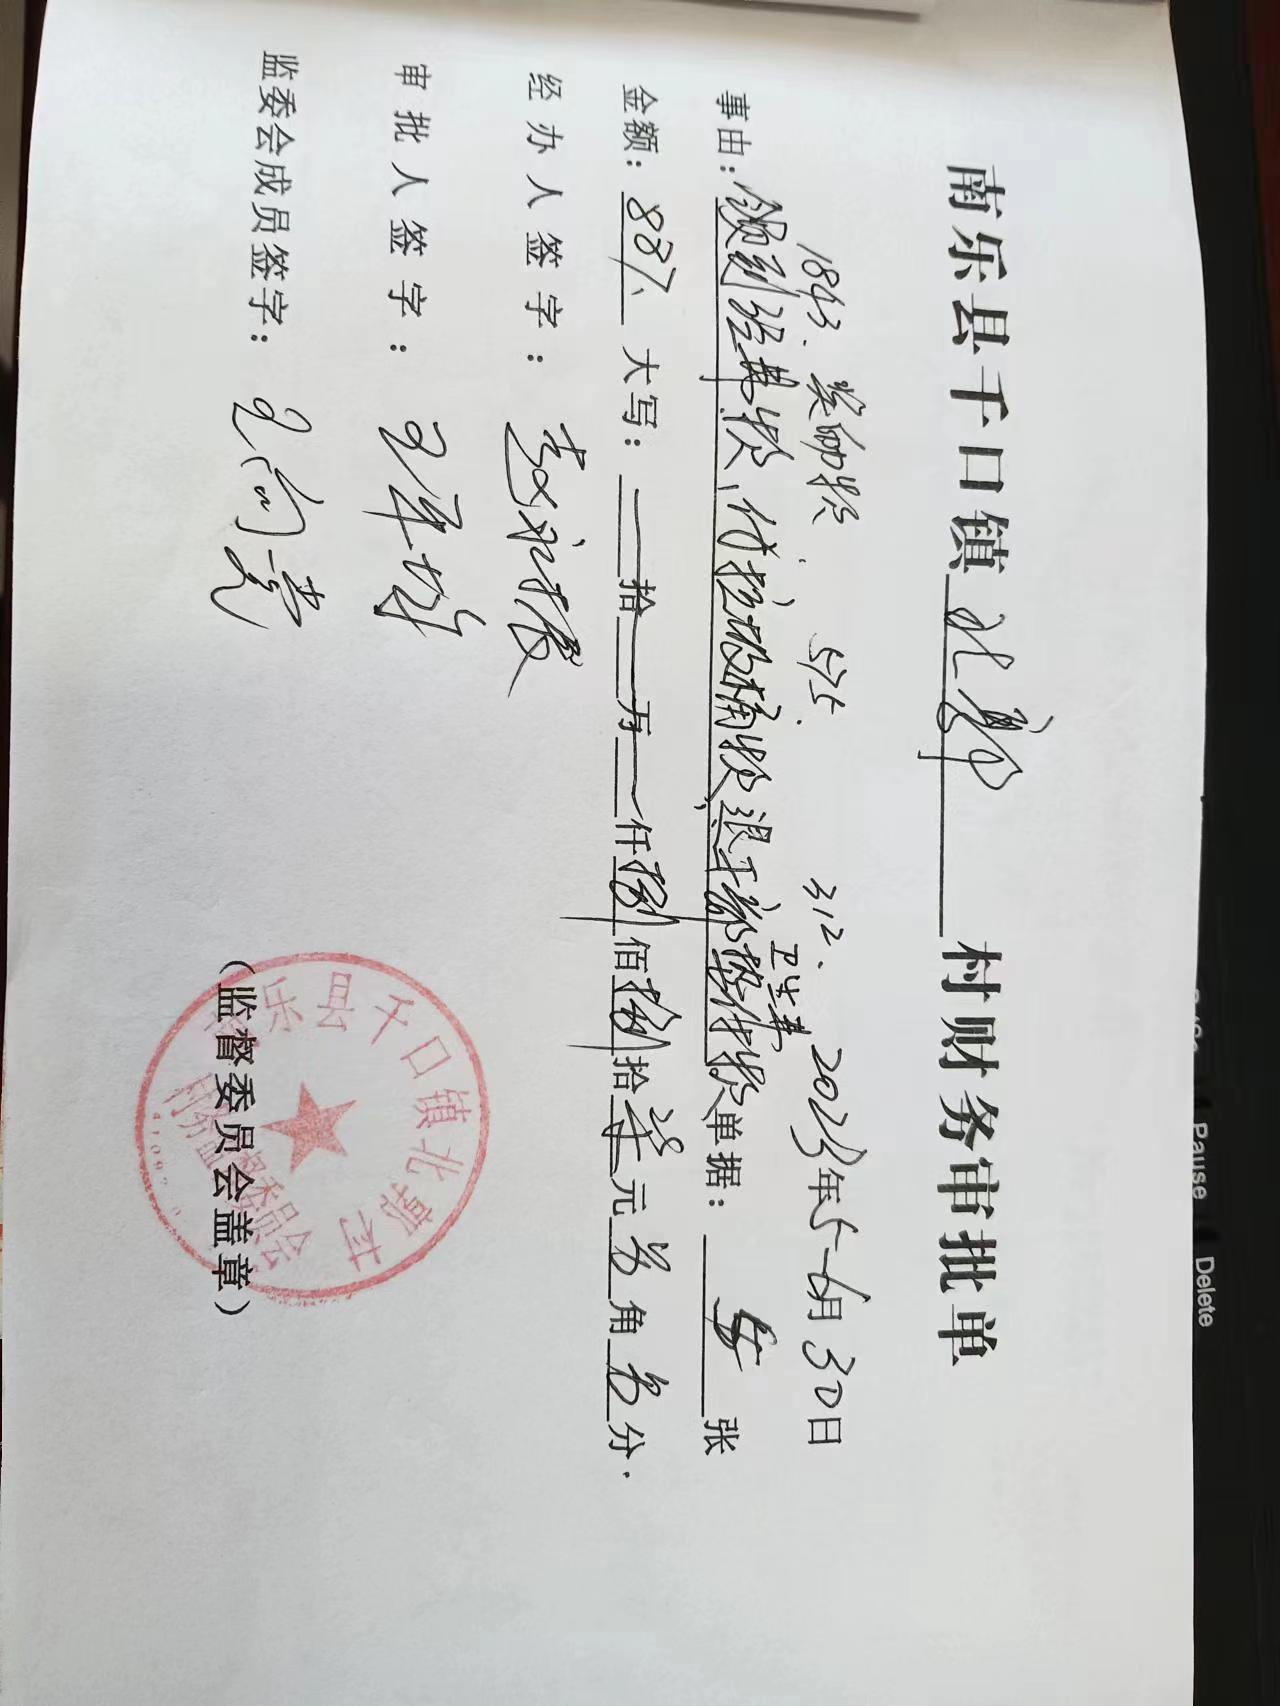 南乐县千口镇北郭村财务审批单
1843. 奖励资 575. 312. 2023年5-6月30日
卫生费
事由：领到经其资，付垃圾桶资退干部垫付资单据：张
金额：887 大写：拾万仟捌佰捌拾柒元角分.
经办人签字：
审批人签字：
监委会成员签字：
（监督委员会盖章）
南乐县千口镇北郭村
村务监督委员会
Pause
Delete